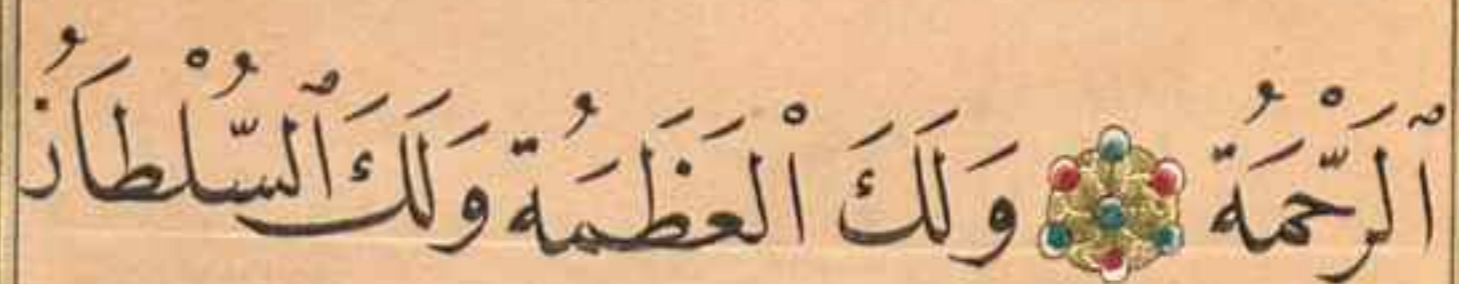 ٱلرَّحْمَةُ وَلَكَ الْعَظَمَةُ وَلَكَ ٱلسُّلْطَانُ